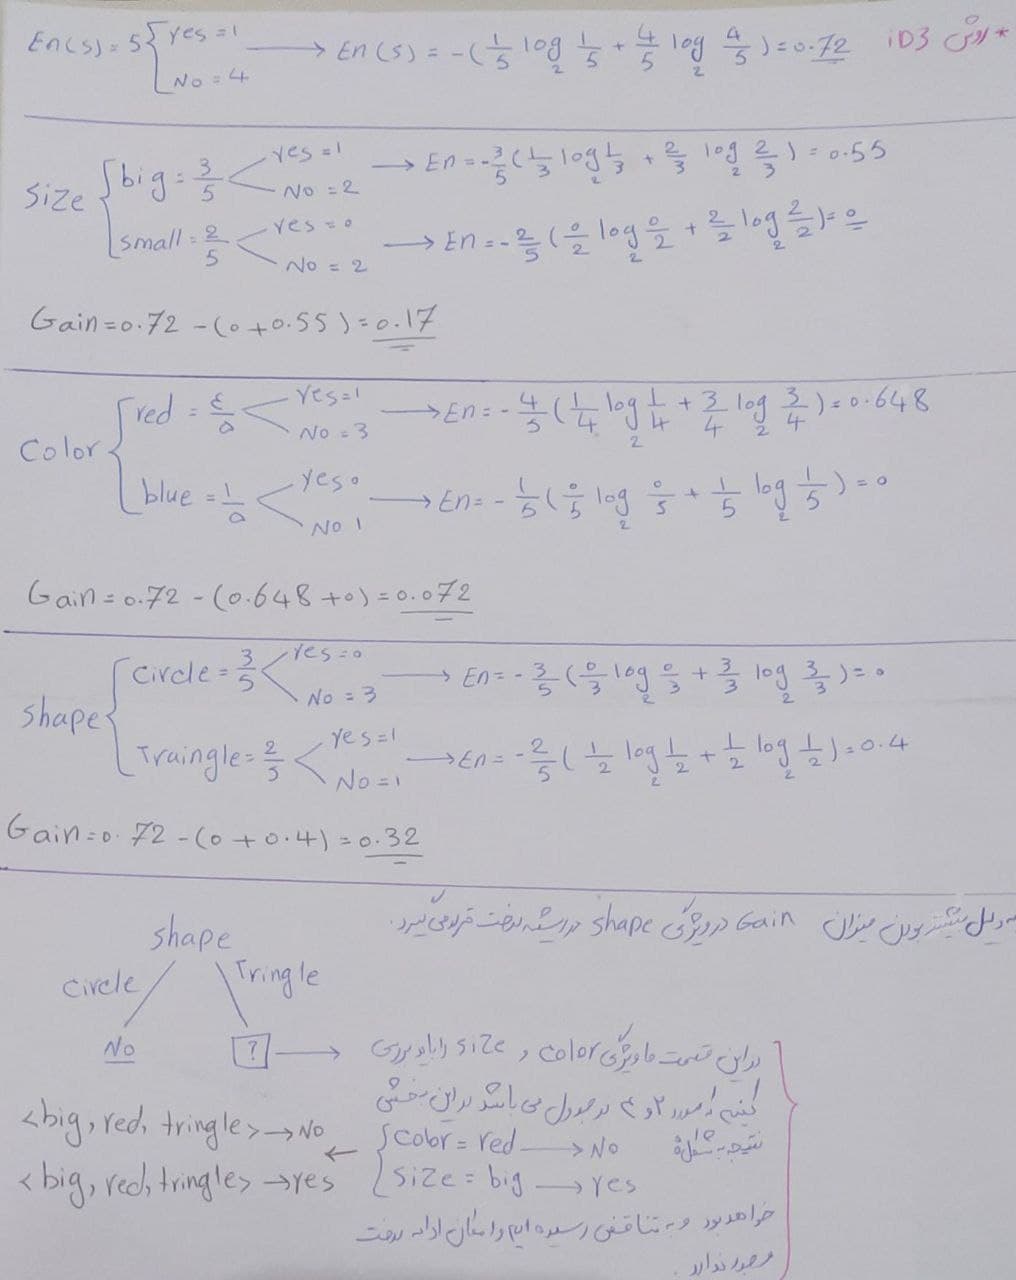 * روش iD3
En(s) = 5 { yes = 1 No = 4 → En(s) = -(1/5 log₂ 1/5 + 4/5 log₂ 4/5) = 0.72
Size { big = 3/5 < yes = 1 No = 2 → En = -3/5 (1/3 log₂ 1/3 + 2/3 log₂ 2/3) = 0.55
small = 2/5 < yes = 0 No = 2 → En = -2/5 (0/2 log₂ 0/2 + 2/2 log₂ 2/2) = 0
Gain = 0.72 - (0 + 0.55) = 0.17
Color { red = ٤/٥ < yes = 1 No = 3 → En = -4/5 (1/4 log₂ 1/4 + 3/4 log₂ 3/4) = 0.648
blue = ١/٥ < yes 0 No 1 → En = -1/5 (0/5 log₂ 0/5 + 1/5 log₂ 1/5) = 0
Gain = 0.72 - (0.648 + 0) = 0.072
Shape { Circle = 3/5 < yes = 0 No = 3 → En = -3/5 (0/3 log₂ 0/3 + 3/3 log₂ 3/3) = 0
Traingle = 2/5 < yes = 1 No = 1 → En = -2/5 (1/2 log₂ 1/2 + 1/2 log₂ 1/2) = 0.4
Gain = 0.72 - (0 + 0.4) = 0.32
به دلیل بیشتر بودن میزان Gain در ویژگی shape در ریشه درخت قرار می گیرد.
shape
Circle Tringle
No ? →
در این قسمت ما ویژگی color و size را باید بررسی
کنیم که مورد ۲ و ۴ در جدول می باشد در این بخش
نتیجه به شکل
{ Color = red → No
Size = big → yes
←
<big, red, tringle> → No
<big, red, tringle> → yes
خواهد بود و به تناقض رسیده ایم و امکان ادامه درخت
وجود ندارد.